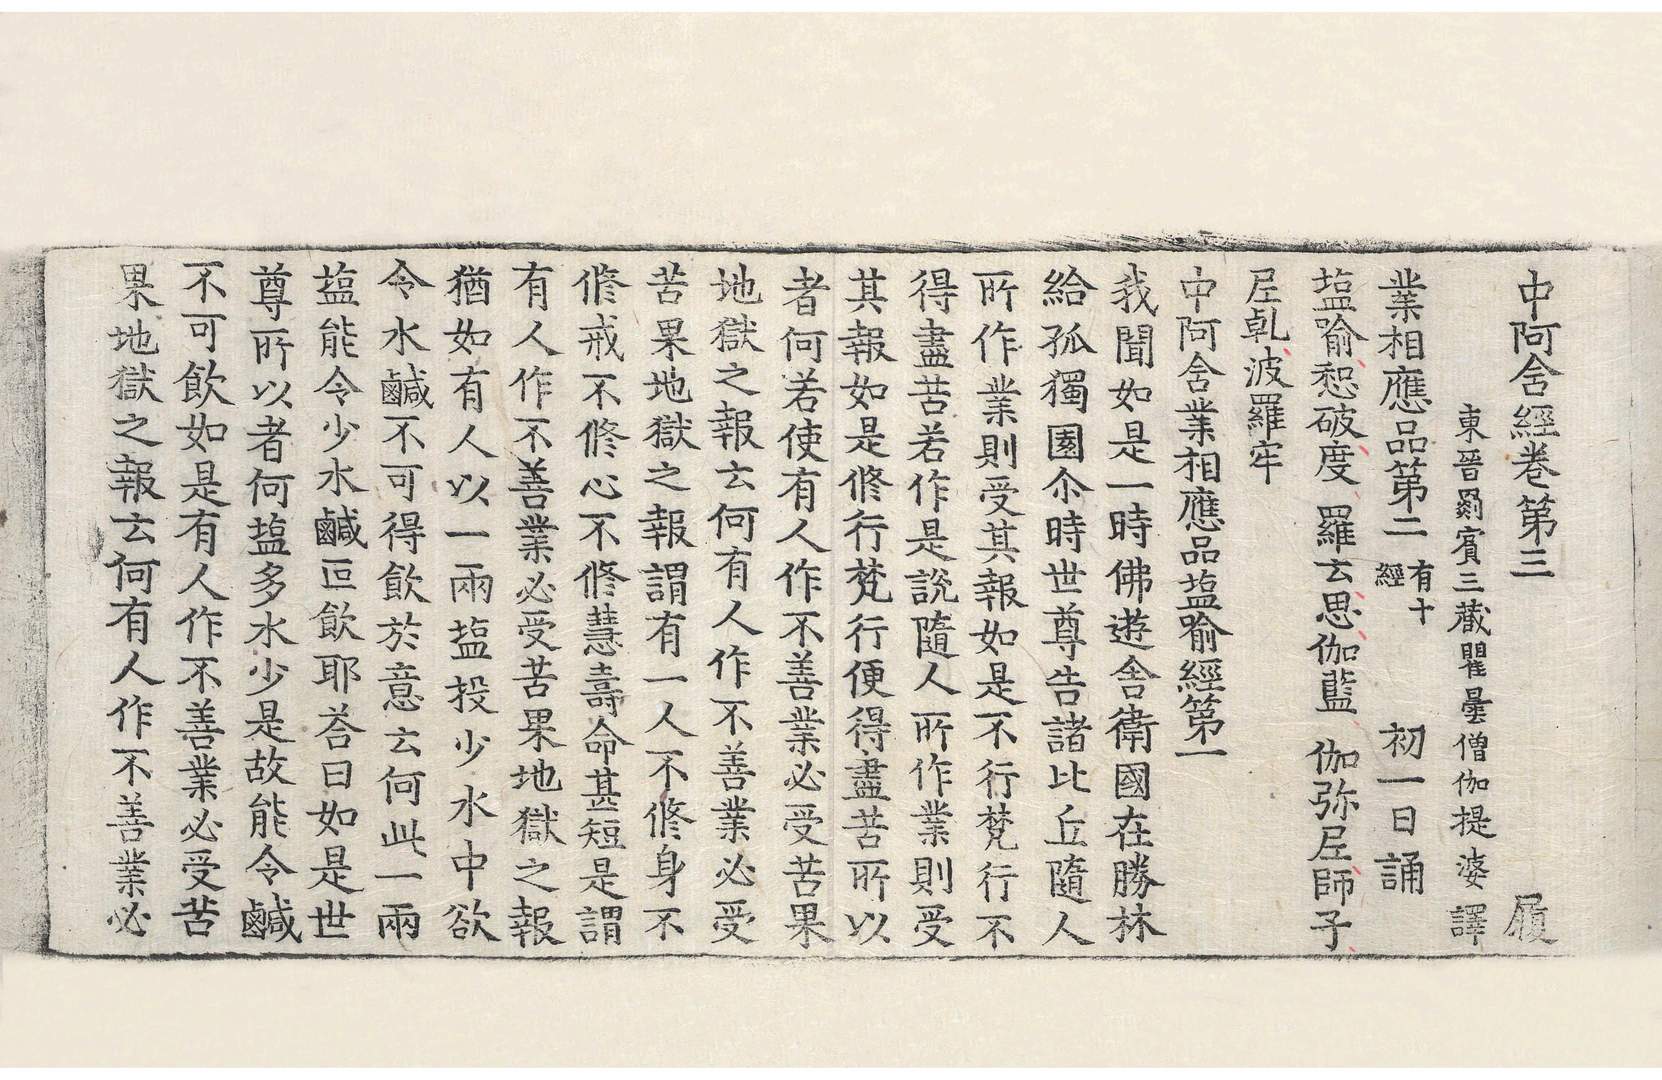 中阿含經卷第三 履
東晉罽賓三藏瞿曇僧伽提婆 譯
業相應品第二 有十經 初一日誦
塩喻惒破度 羅云思伽藍 伽弥尼師子
尼乹波羅牢
中阿含業相應品塩喻經第一
我聞如是一時佛遊舍衛國在勝林
給孤獨園尒時世尊告諸比丘隨人
所作業則受其報如是不行梵行不
得盡苦若作是說隨人所作業則受
其報如是修行梵行便得盡苦所以
者何若使有人作不善業必受苦果
地獄之報云何有人作不善業必受
苦果地獄之報謂有一人不修身不
修戒不修心不修慧壽命甚短是謂
有人作不善業必受苦果地獄之報
猶如有人以一兩塩投少水中欲
令水鹹不可得飲於意云何此一兩
塩能令少水鹹叵飲耶荅曰如是世
尊所以者何塩多水少是故能令鹹
不可飲如是有人作不善業必受苦
果地獄之報云何有人作不善業必